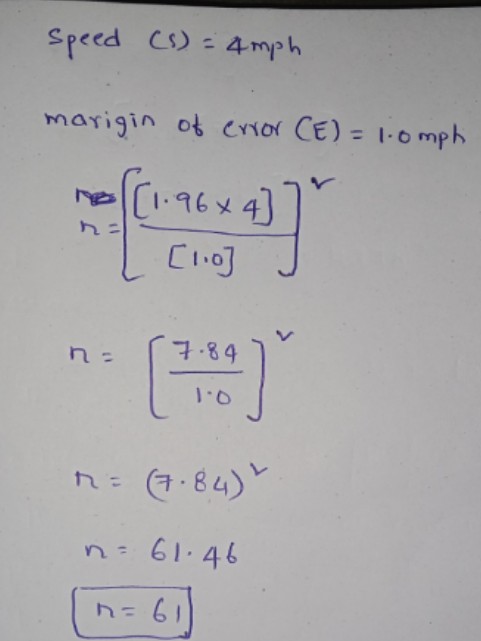 Speed (s) = 4mph
marigin of error (E) = 1.0 mph
n = [[1.96 x 4] / [1.0]]²
n = [7.84 / 1.0]²
n = (7.84)²
n = 61.46
n = 61